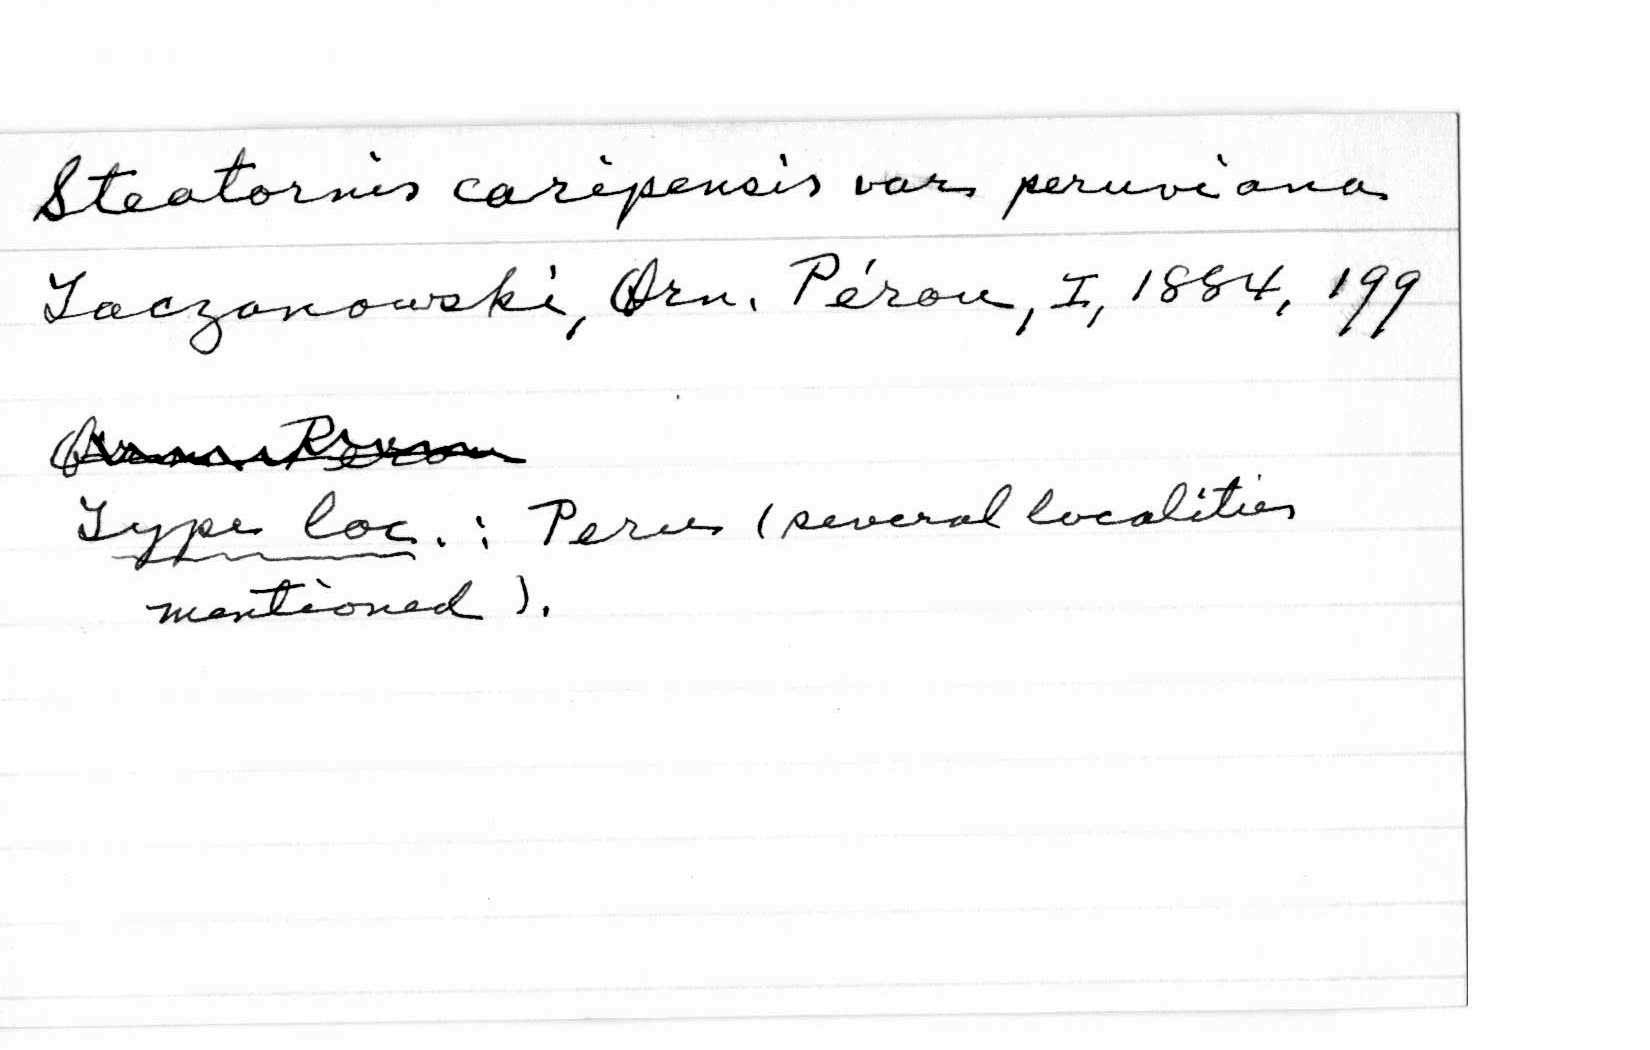 Steatornis caripensis var. peruviana
Taczanowski, Orn. Pérou, I, 1884, 199
Orn. Perou
Type loc.: Peru (several localities
mentioned).